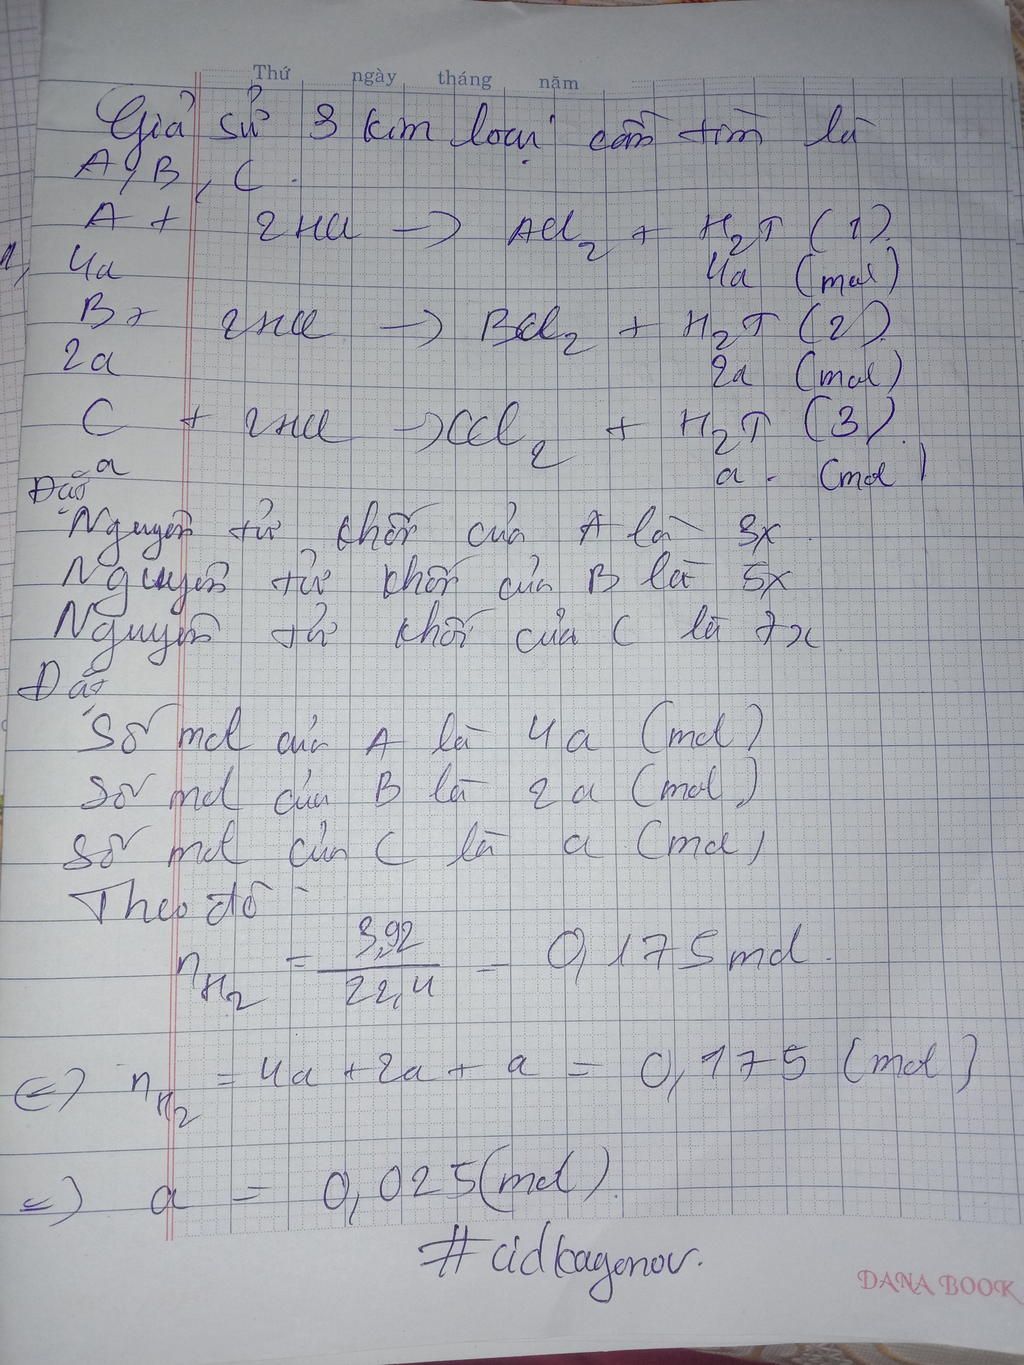 Thứ ngày tháng năm
Giả sử 3 kim loại cần tìm là
A, B, C.
A + 2HCl → ACl2 + H2↑ (1).
4a 4a (mol)
B + 2HCl → BCl2 + H2↑ (2).
2a 2a (mol)
C + 2HCl → CCl2 + H2↑ (3).
a a (mol)
Đặt
Nguyên tử khối của A là 3x
Nguyên tử khối của B là 5x
Nguyên tử khối của C là 7x
Đặt
Số mol của A là 4a (mol)
Số mol của B là 2a (mol)
Số mol của C là a (mol)
Theo đề:
nH2 = 3,92/22,4 = 0,175 mol.
<=> nH2 = 4a + 2a + a = 0,175 (mol)
=> a = 0,025 (mol).
#cidkagenov.
DANA BOOK